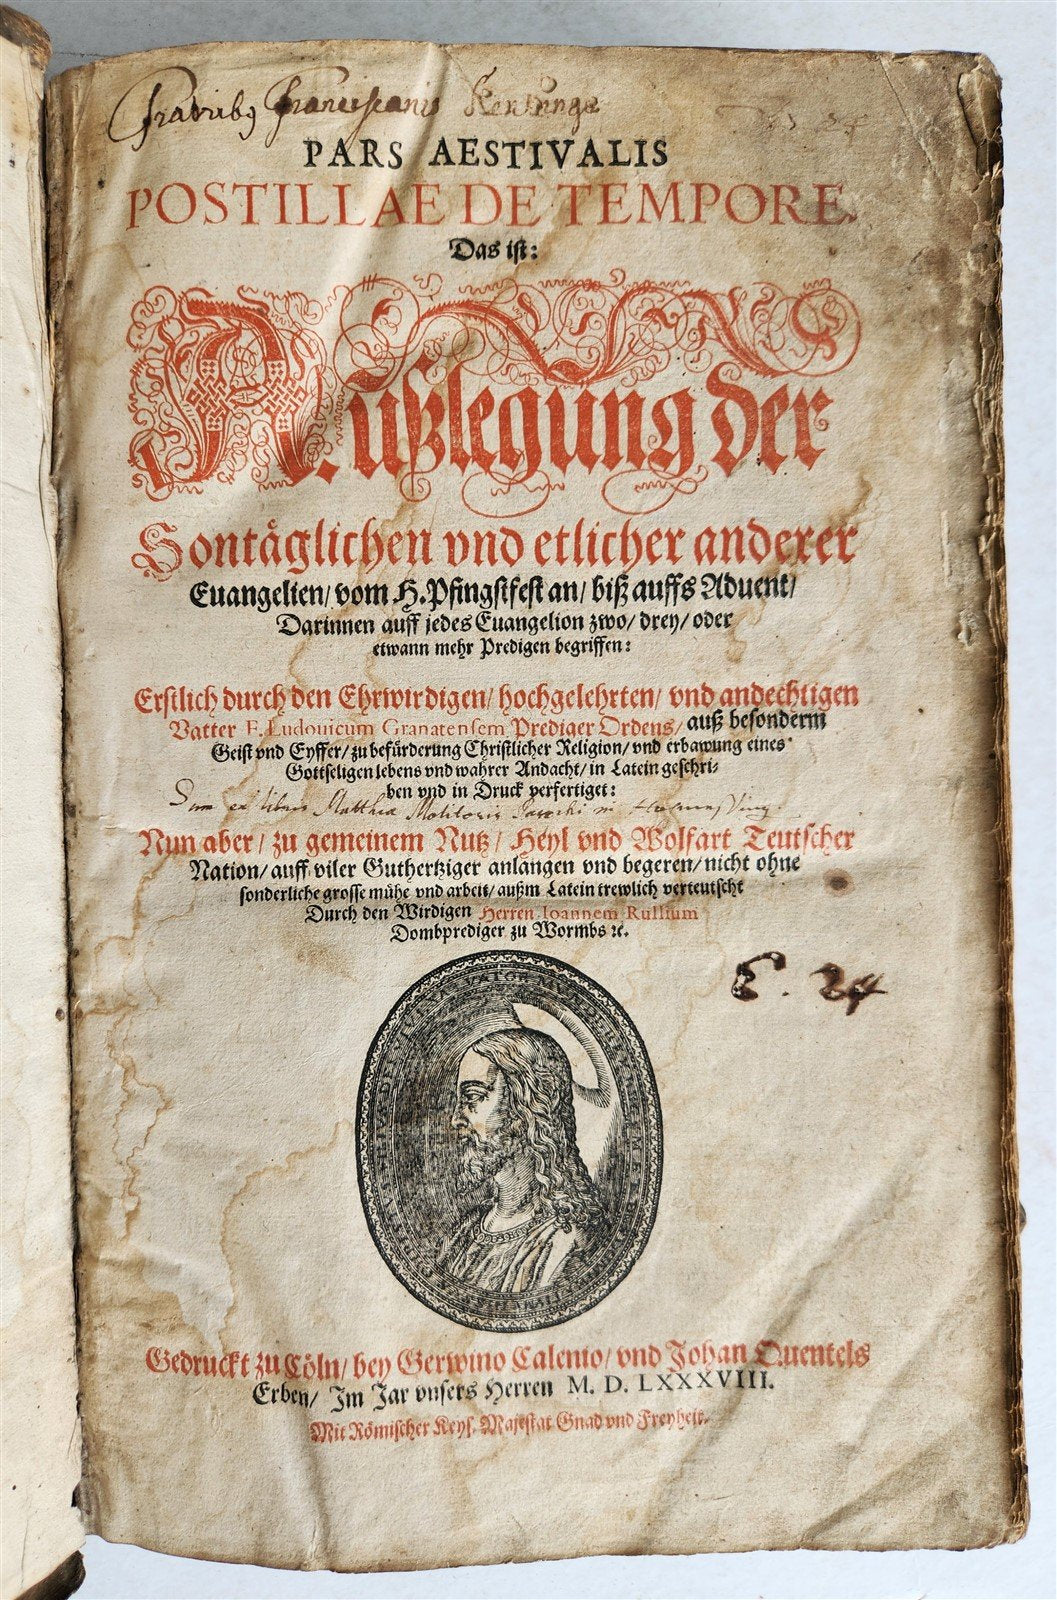 Fratribus Franciscanis Kenzinge
PARS AESTIVALIS
POSTILLAE DE TEMPORE.
Das ist:
Außlegung der
Sontäglichen vnd etlicher anderer
Euangelien/ vom H. Pfingstfest an/ biß auffs Aduent/
Darinnen auff jedes Euangelion zwo/ drey/ oder
etwann mehr Predigen begriffen:
Erstlich durch den Ehrwirdigen/ hochgelehrten/ vnd andechtigen
Vatter F. Ludouicum Granatensem Prediger Ordens/ auß besonderm
Geist vnd Eyffer/ zu befürderung Christlicher Religion/ vnd erbawung eines
Gottseligen lebens vnd wahrer Andacht/ in Latein geschri-
ben vnd in Druck perfertiget:
Sum ex libris Matthiæ Molitoris Parochi in
Nun aber/ zu gemeinem Nutz/ Heyl vnd Wolfart Teutscher
Nation/ auff viler Guthertziger anlangen vnd begeren/ nicht ohne
sonderliche grosse mühe vnd arbeit/ außm Latein trewlich verteutscht
Durch den Wirdigen Herren Ioannem Rullium
Dombprediger zu Wormbs ꝛc.
E. 24
Gedruckt zu Cöln/ bey Gerwino Calenio/ vnd Johan Quentels
Erben/ Im Jar vnsers Herren M. D. LXXXVIII.
Mit Römischer Keys. Majestat Gnad vnd Freyheit.